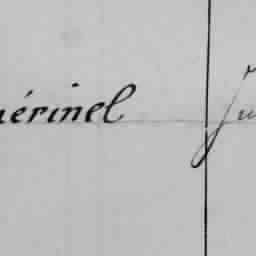 érinel Ju